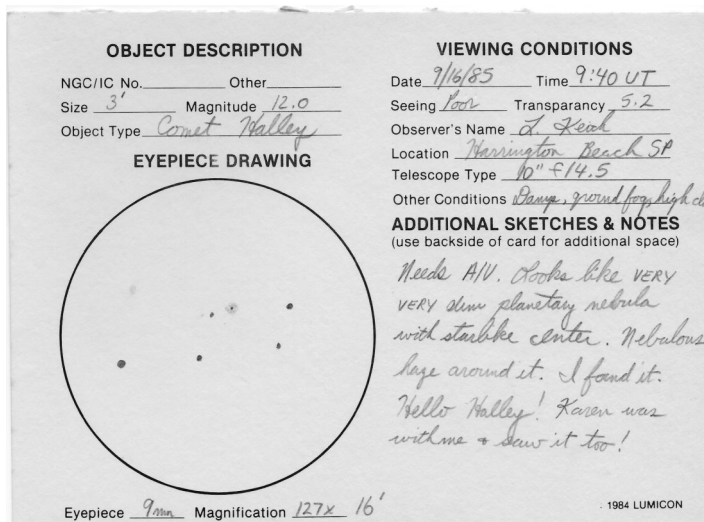 OBJECT DESCRIPTION
NGC/IC No. Other
Size 3' Magnitude 12.0
Object Type Comet Halley
EYEPIECE DRAWING
Eyepiece 9mm Magnification 127x 16'
VIEWING CONDITIONS
Date 9/16/85 Time 9:40 UT
Seeing Poor Transparency 5.2
Observer's Name L.
Location Harrington Beach SP
Telescope Type 10" f/4.5
Other Conditions Damp, ground fog, high
ADDITIONAL SKETCHES & NOTES
(use backside of card for additional space)
Needs A/V. Looks like VERY
VERY dim planetary nebula
with starlike center. Nebulous
haze around it. I found it.
Hello Halley! Karen was
with me & saw it too!
1984 LUMICON